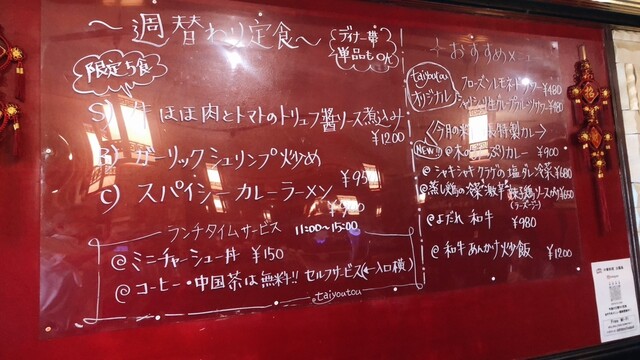 ～週替わり定食～
ディナー帯
単品もOK
限定5食
牛ほほ肉とトマトのトリュフ醬ソース煮込み
¥1200
B) ガーリックシュリンプ炒め
¥950
C) スパイシーカレーラーメン
ランチタイムサービス 11:00～15:00
@ミニチャーシュー丼 ¥150
@コーヒー・中国茶は無料!! セルフサービス(←入口横)
taiyoutou
おすすめメニュー
taiyoutou
オリジナル
フローズンレモネードサワー ¥480
¥480
<今月の料理長特製カレー>
NEW!! カレー ¥900
@シャキシャキクラゲの塩ダレ冷菜 ¥680
@蒸し鶏の冷菜 ¥650
@よだれ和牛 ¥980
@和牛あんかけ炒飯 ¥1200